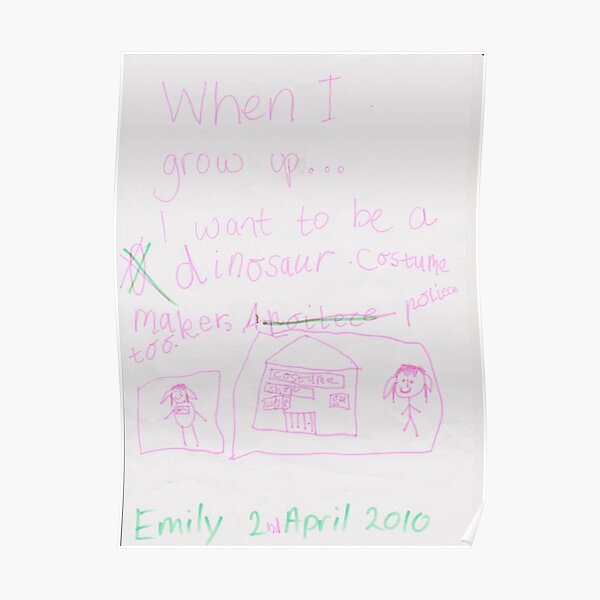 When I
grow up...
I want to be a
dinosaur. costume
makers, poliece
too.
costume
shop
Emily 2nd April 2010